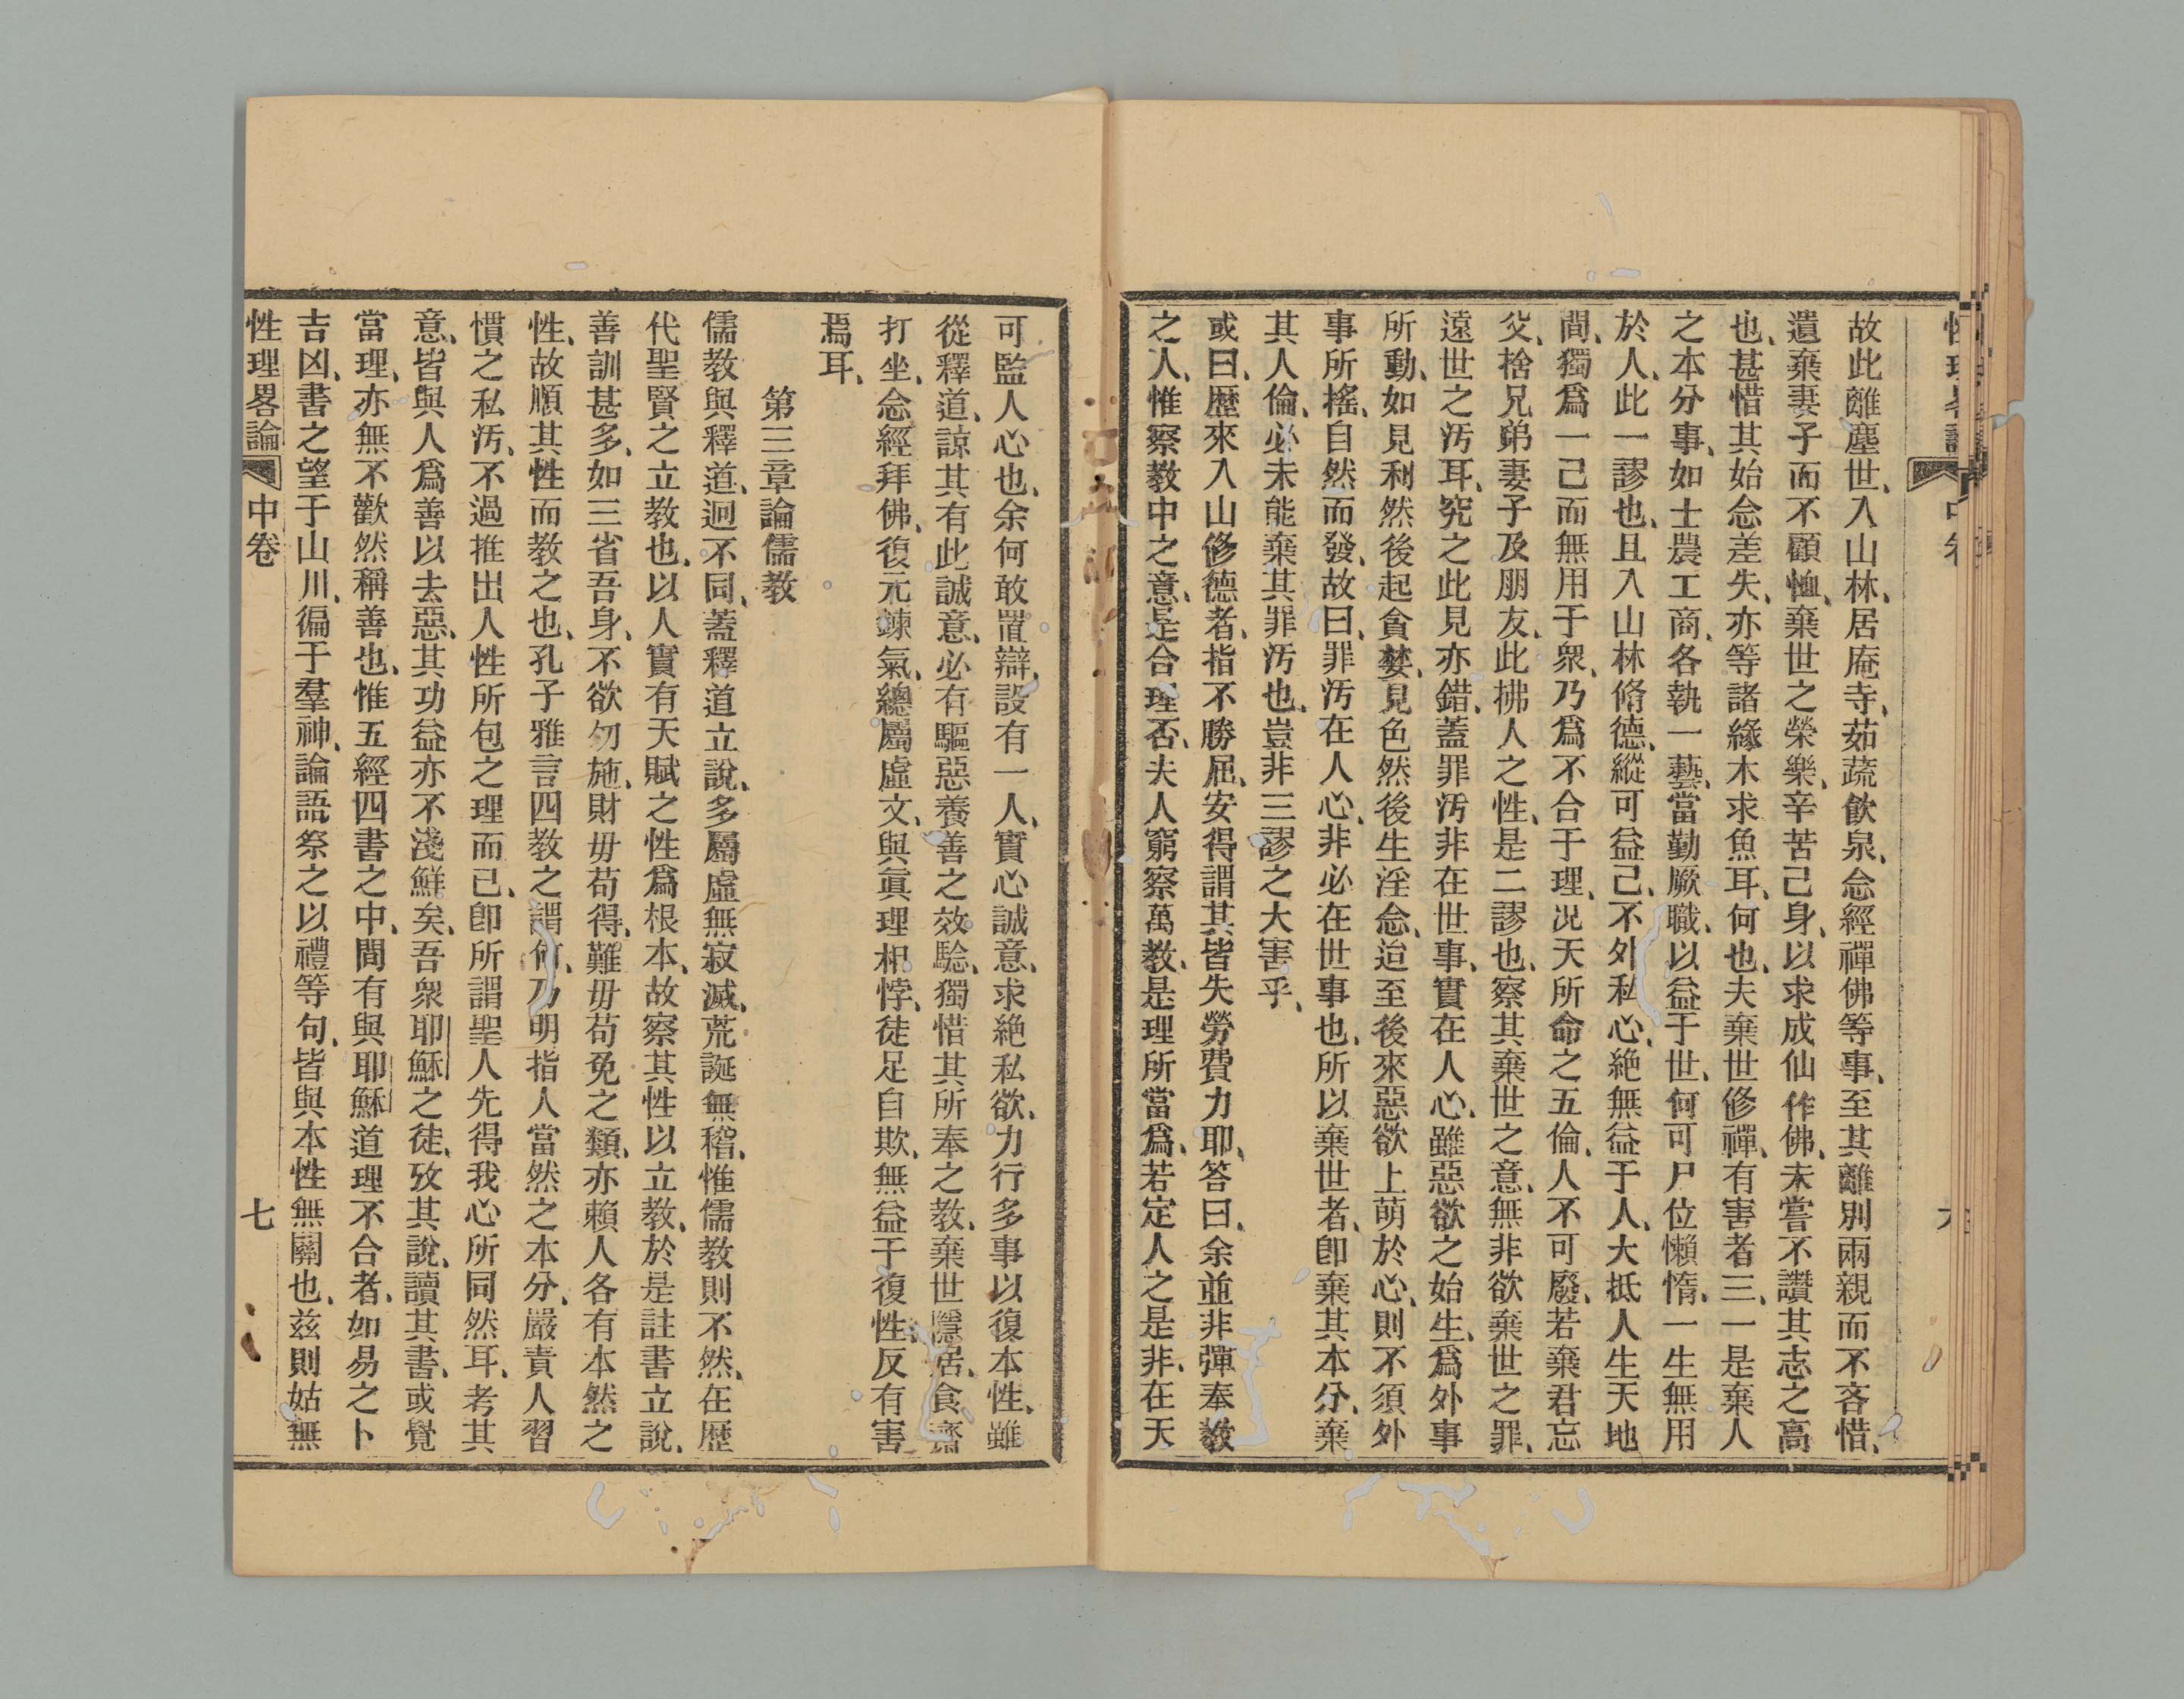 故此離塵世、入山林、居庵寺、茹蔬飲泉、念經禪佛等事、至其離別兩親而不吝惜、
遺棄妻子而不顧恤、棄世之榮樂、辛苦己身、以求成仙作佛、未嘗不讚其志之高
也、甚惜其始念差失、亦等諸緣木求魚耳、何也、夫棄世修禪、有害者三、一是棄人
之本分事、如士農工商、各執一藝、當勤厥職、以益于世、何可尸位懶惰、一生無用
於人、此一謬也、且入山林脩德、縱可益己、不外私心、絶無益于人、大抵人生天地
間、獨爲一己而無用于衆、乃爲不合于理、况天所命之五倫、人不可廢、若棄君忘
父、捨兄弟妻子及朋友、此拂人之性、是二謬也、察其棄世之意、無非欲棄世之罪、
遠世之汚耳、究之此見亦錯、蓋罪汚非在世事、實在人心、雖惡欲之始生、爲外事
所動、如見利然後起貪婪、見色然後生淫念、迨至後來惡欲上萌於心、則不須外
事所搖、自然而發、故曰、罪汚在人心、非必在世事也、所以棄世者、卽棄其本分、棄
其人倫、必未能棄其罪汚也、豈非三謬之大害乎、
或曰、歷來入山修德者、指不勝屈、安得謂其皆失勞費力耶、答曰、余並非彈奉教
之人、惟察教中之意、是合理否、夫人窮察萬教、是理所當爲、若定人之是非、在天
可監人心也、余何敢詈辯、設有一人、實心誠意、求絶私欲、力行多事以復本性、雖
從釋道、諒其有此誠意、必有驅惡養善之效驗、獨惜其所奉之教、棄世隱居、食齋
打坐、念經拜佛、復元鍊氣、總屬虛文、與眞理相悖、徒足自欺、無益于復性、反有害
焉耳、
第三章論儒教
儒教與釋道、迥不同、蓋釋道立說、多屬虛無寂滅、荒誕無稽、惟儒教則不然、在歷
代聖賢之立教也、以人實有天賦之性爲根本、故察其性以立教、於是註書立說、
善訓甚多、如三省吾身、不欲勿施、財毋苟得、難毋苟免之類、亦賴人各有本然之
性、故順其性而教之也、孔子雅言四教之謂何、乃明指人當然之本分、嚴責人習
慣之私汚、不過推出人性所包之理而已、卽所謂聖人先得我心所同然耳、考其
意、皆與人爲善以去惡、其功益亦不淺鮮矣、吾衆耶穌之徒、攷其說、讀其書、或覺
當理、亦無不歡然稱善也、惟五經四書之中、間有與耶穌道理不合者、如易之卜
吉凶、書之望于山川、徧于羣神、論語祭之以禮等句、皆與本性無關也、茲則姑無
性理畧論 中卷 七